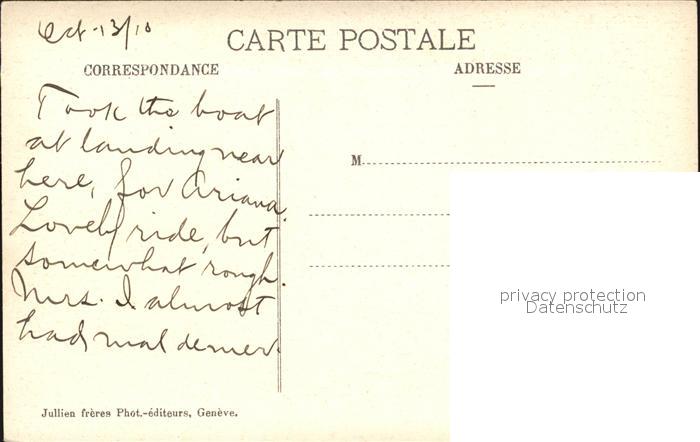 Oct-13/10
CARTE POSTALE
CORRESPONDANCE
ADRESSE
Took the boat
at landing near
here, for Ariana.
Lovely ride, but
somewhat rough.
Mrs. I. almost
had mal demer.
M
privacy protection
Datenschutz
Jullien frères Phot.-éditeurs, Genève.